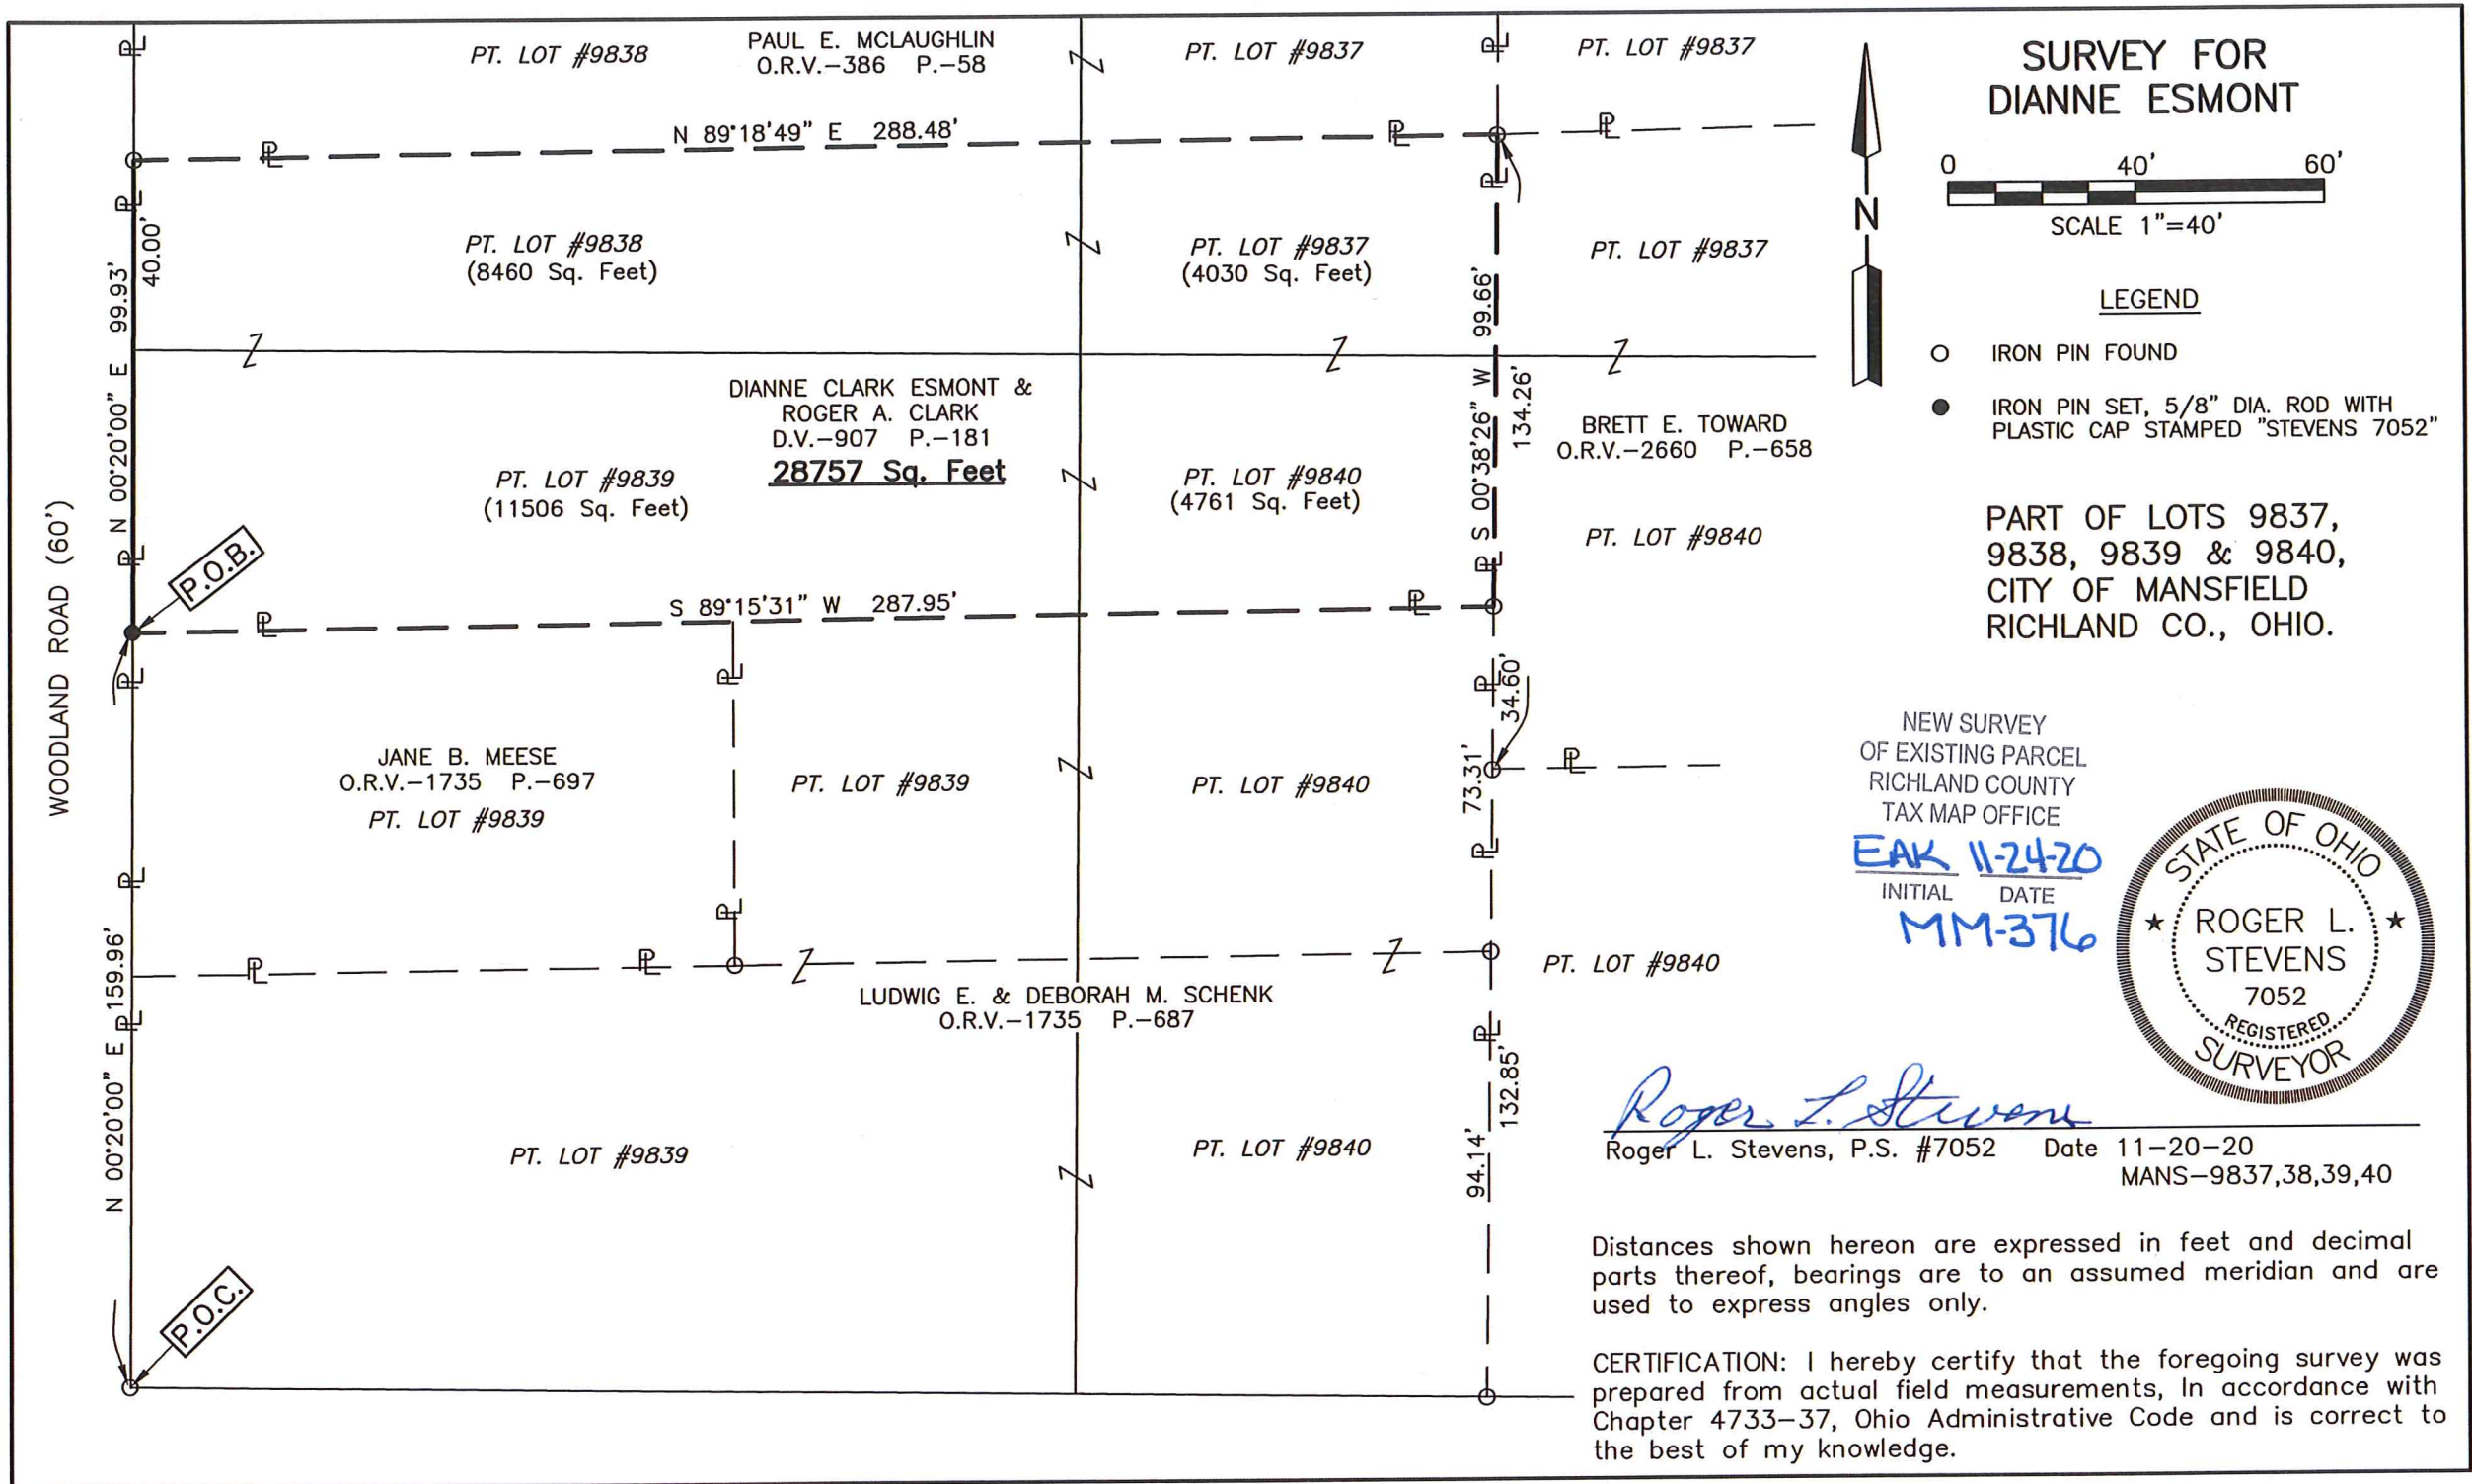 PT. LOT #9838
PAUL E. MCLAUGHLIN
O.R.V.-386 P.-58
PT. LOT #9837
PT. LOT #9837
N 89°18'49" E 288.48'
40.00'
N 00°20'00" E 99.93'
PT. LOT #9838
(8460 Sq. Feet)
PT. LOT #9837
(4030 Sq. Feet)
PT. LOT #9837
S 00°38'26" W 99.66'
134.26'
DIANNE CLARK ESMONT &
ROGER A. CLARK
D.V.-907 P.-181
28757 Sq. Feet
PT. LOT #9839
(11506 Sq. Feet)
PT. LOT #9840
(4761 Sq. Feet)
BRETT E. TOWARD
O.R.V.-2660 P.-658
PT. LOT #9840
WOODLAND ROAD (60')
P.O.B.
S 89°15'31" W 287.95'
34.60'
73.31'
JANE B. MEESE
O.R.V.-1735 P.-697
PT. LOT #9839
PT. LOT #9839
PT. LOT #9840
PT. LOT #9840
LUDWIG E. & DEBORAH M. SCHENK
O.R.V.-1735 P.-687
N 00°20'00" E 159.96'
PT. LOT #9839
PT. LOT #9840
132.85'
94.14'
P.O.C.
SURVEY FOR
DIANNE ESMONT
0 40' 60'
SCALE 1"=40'
N
LEGEND
IRON PIN FOUND
IRON PIN SET, 5/8" DIA. ROD WITH
PLASTIC CAP STAMPED "STEVENS 7052"
PART OF LOTS 9837,
9838, 9839 & 9840,
CITY OF MANSFIELD
RICHLAND CO., OHIO.
NEW SURVEY
OF EXISTING PARCEL
RICHLAND COUNTY
TAX MAP OFFICE
EAK 11-24-20
INITIAL DATE
MM-376
STATE OF OHIO
ROGER L.
STEVENS
7052
REGISTERED
SURVEYOR
Roger L. Stevens
Roger L. Stevens, P.S. #7052 Date 11-20-20
MANS-9837,38,39,40
Distances shown hereon are expressed in feet and decimal
parts thereof, bearings are to an assumed meridian and are
used to express angles only.
CERTIFICATION: I hereby certify that the foregoing survey was
prepared from actual field measurements, In accordance with
Chapter 4733-37, Ohio Administrative Code and is correct to
the best of my knowledge.